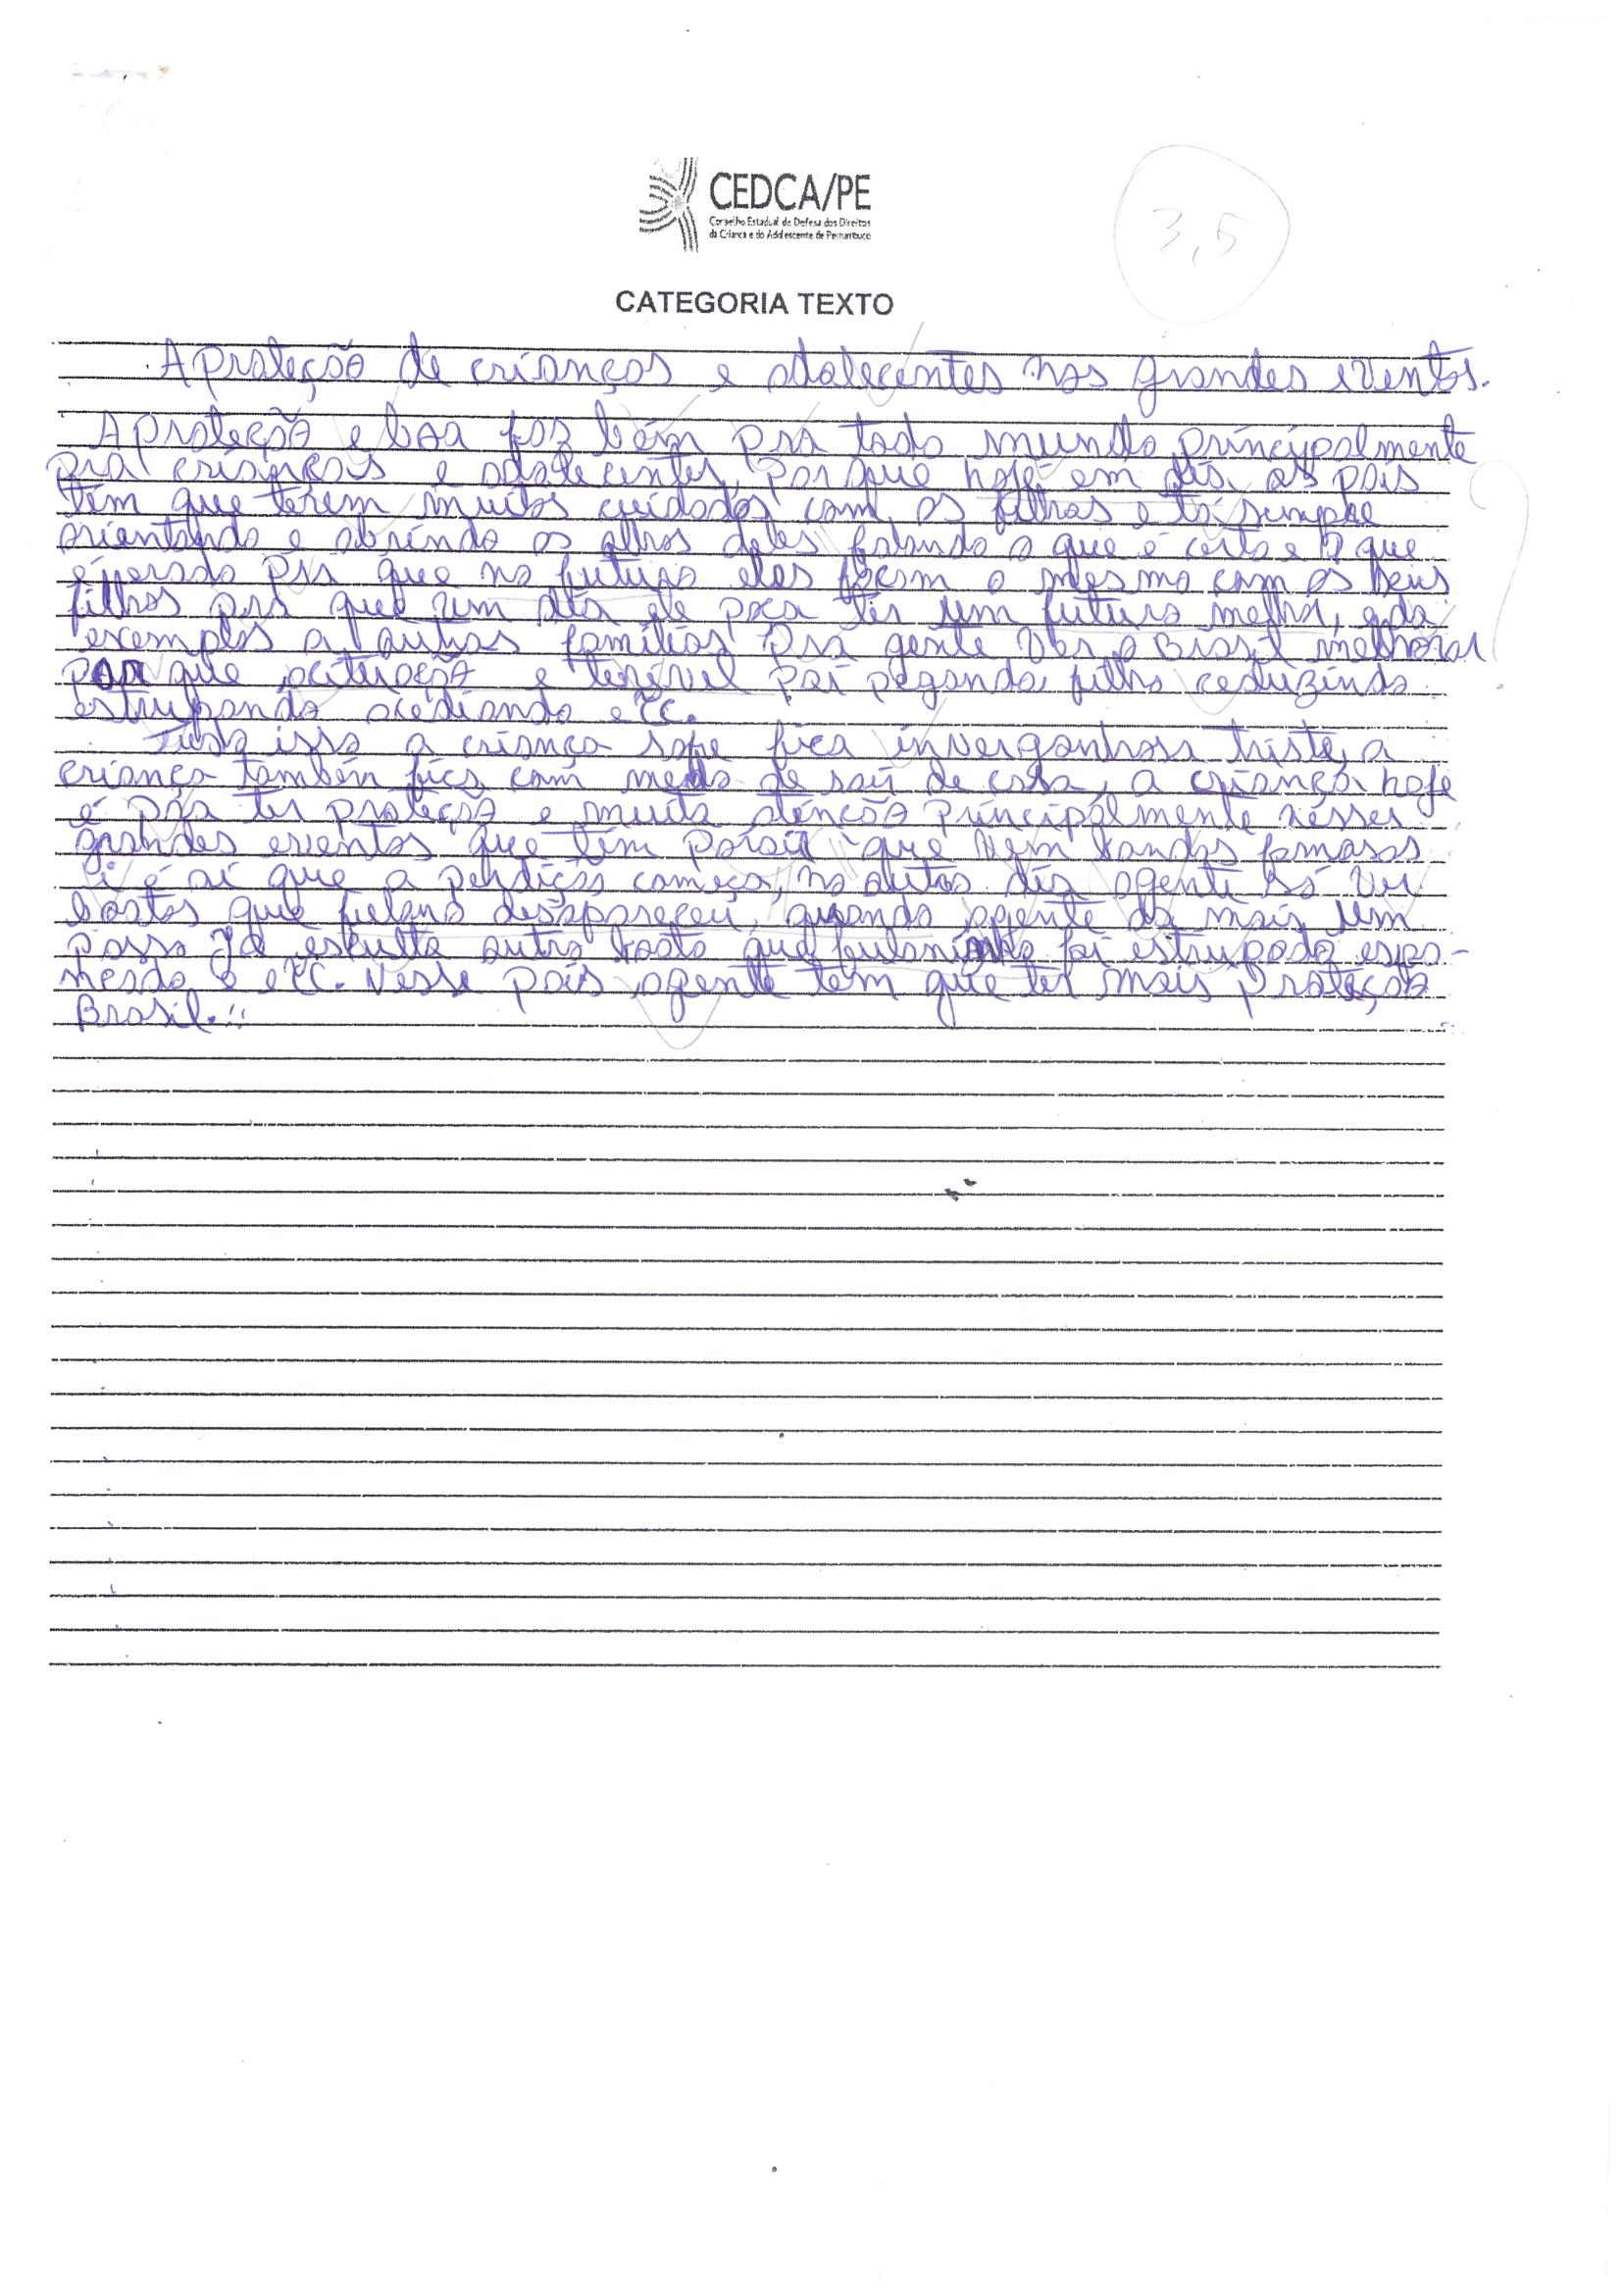 CEDCA/PE
Conselho Estadual de Defesa dos Direitos
da Criança e do Adolescente de Pernambuco
3,5
CATEGORIA TEXTO
A proteção de crianças e adalecentes nos grandes eventos.
A proteção e boa faz bem pra todo mundo principalmente
pra crianças e adalecentes, porque hoje em dia, os pais
tem que terem muitos cuidados com os filhos e tá sempre
orientando e abrindo os olhos deles falando o que é certo e o que
é perado pra que no futuro eles façam o mesmo com os seus
filhos pra que um dia ele poça ter um futuro melhor, e da
exemplos a outras famílias pra gente ver o Brasil melhorar
por que acituação e terivel pai pegando filho ceduzindo
estrupando acediando eTC.
Tudo isso a criança sofre fica invergonhosa triste, a
criança também fica com medo de sair de casa, a criança hoje
é pra ter proteção e muita atenção principalmente nesses
grandes eventos que tem por aí que vem bandas famosas
i é aí que a perdição começa, no outro dia agente só ver
boatos que fulano desapareceu, quando agente da mais um
passo já esculta outro boato que fulaninho foi estrupado espa-
ncado e eTC. Nesse país agente tem que ter mais proteção
Brasil.!!